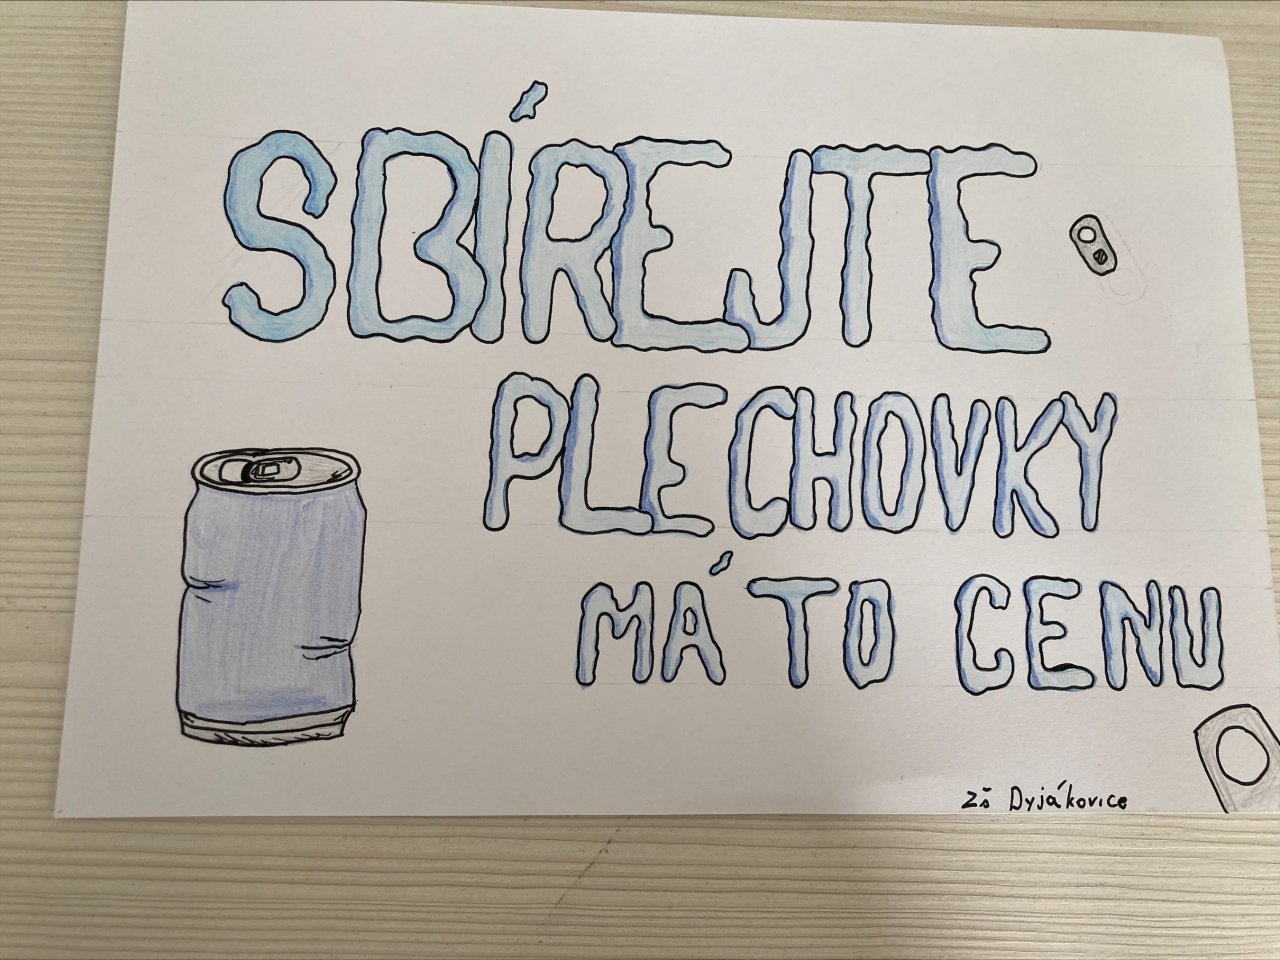 SBÍREJTE
PLECHOVKY
MÁ TO CENU
ZŠ Dyjákovice